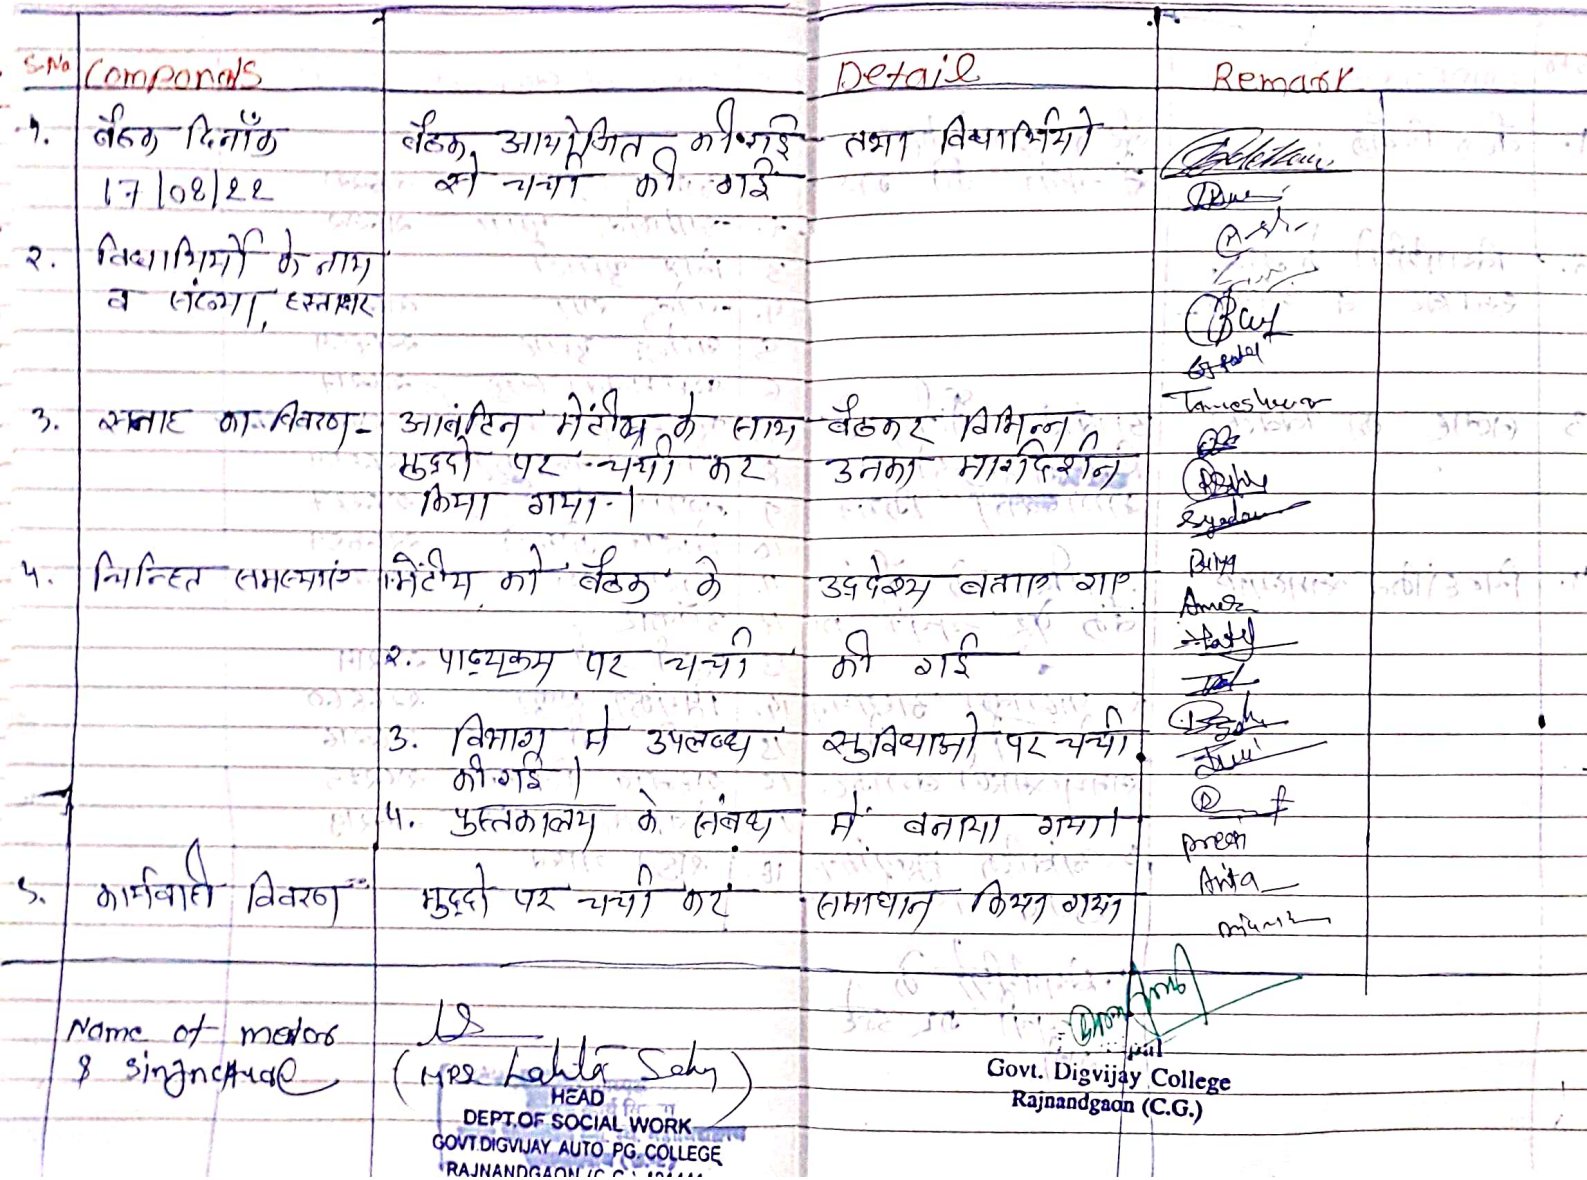 S.No Componants Detail Remark
1. बैठक दिनाँक बैठक आयोजित की गई तथा विद्यार्थियो
17/08/22 से चर्चा की गई
2. विद्यार्थियों के नाम
व संख्या, हस्ताक्षर
3. सप्ताह का विवरण - आबंटित मेंटीस के साथ बैठकर विभिन्न
मुद्दो पर चर्चा कर उनका मार्गदर्शन
किया गया।
Tameshwar
4. चिन्हित समस्याएं मेंटीस को बैठक के उद्देश्य बताए गए
Priya
2. पाठ्यक्रम पर चर्चा की गई
3. विभाग में उपलब्ध सुविधाओ पर चर्चा
की गई।
4. पुस्तकालय के संबंध में बताया गया।
5. कार्यवाही विवरण मुद्दो पर चर्चा कर समाधान किया गया
Anita
Name of mentor
& Singnctural
(Mrs Lalita Sahu)
HEAD
DEPT.OF SOCIAL WORK
GOVT.DIGVIJAY AUTO PG. COLLEGE
RAJNANDGAON (C.G.)
Govt. Digvijay College
Rajnandgaon (C.G.)